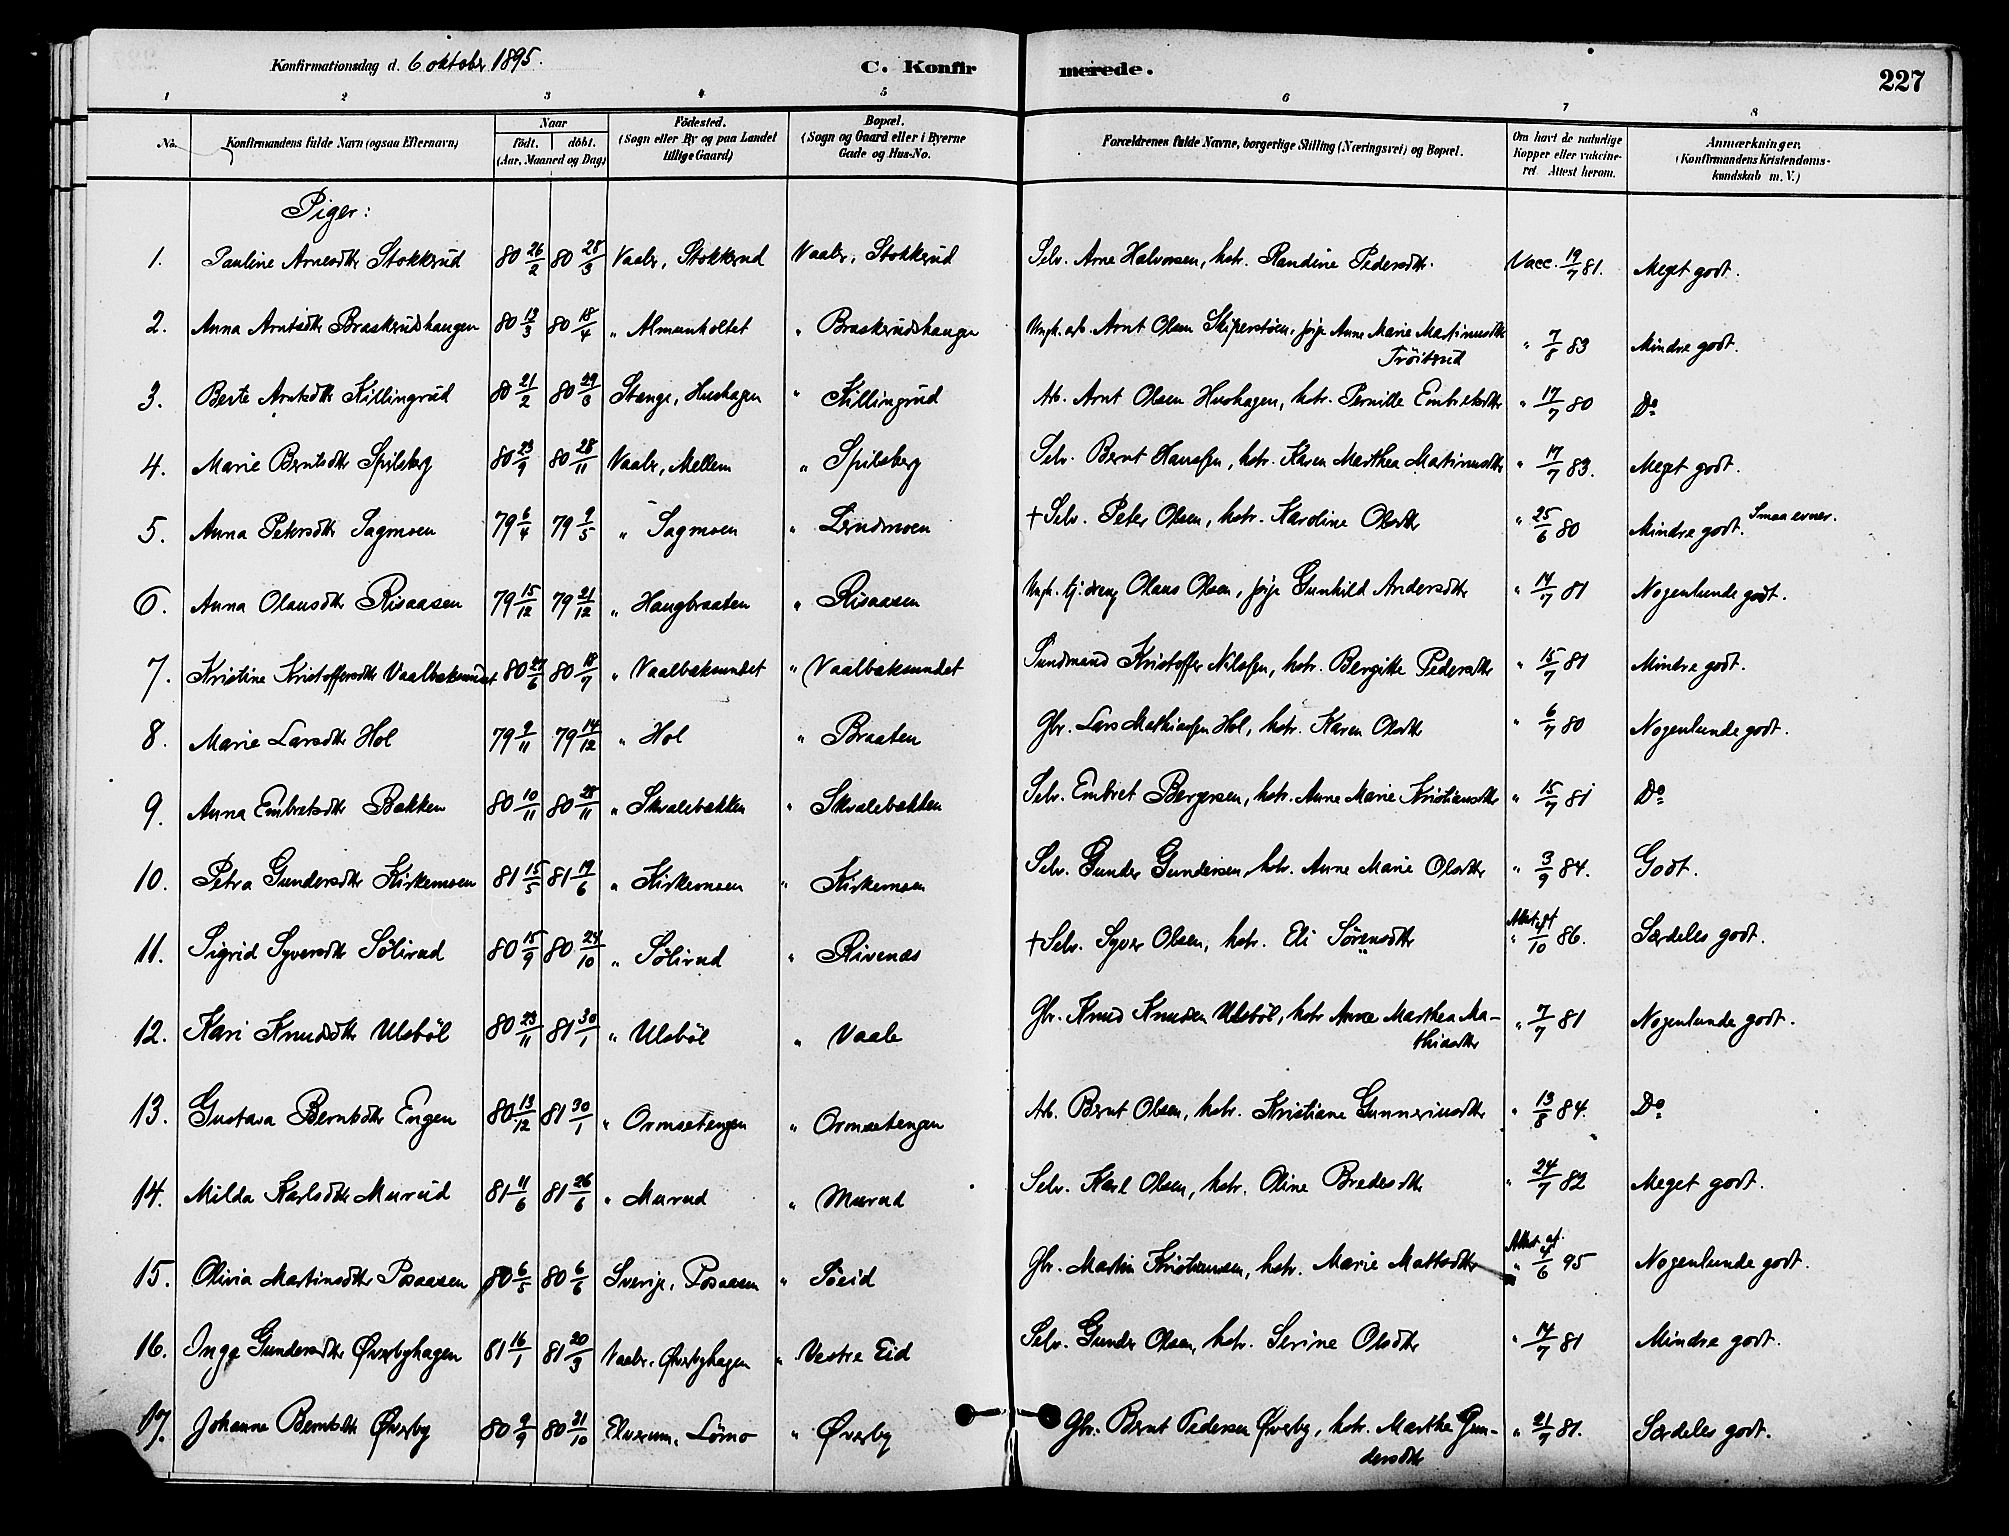 Konfirmationsdag d. 6 oktober 1895. C. Konfirmerede. 227
1 2 3 4 5 6 7 8
No. Konfirmandens fulde Navn (ogsaa Efternavn) Naar født. døbt. (Aar, Maaned og Dag) Fødested. (Sogn eller By og paa Landet tillige Gaard) Bopæl. (Sogn og Gaard eller i Byerne Gade og Hus-No. Forældrenes fulde Navne, borgerlige Stilling (Næringsvei) og Bopæl. Om havt de naturlige Kopper eller vakcineret. Attest herom. Anmærkninger. (Konfirmandens Kristendomskundskab m. V.)
Piger:
1. Pauline Arnesdtr Stokkrud 80 26/2 80 28/3 Vaaler, Stokkrud Vaaler, Stokkrud Selv. Arne Halvorsen, hstr. Randine Pedersdtr. Vacc. 19/7 81. Meget godt.
2. Anna Arntsdtr Braskerudshaugen 80 13/3 80 18/4 " Almenholtet " Braskerudshaugen Ungk. arb. Arnt Olsen Skiperstøen, pige Anne Marie Martinusdtr
Trøiterud " 7/8 83 Mindre godt.
3. Berte Arntsdtr Killingrud 80 21/2 80 29/3 Stange, Hushagen " Killingrud Arb. Arnt Olsen Hushagen, hstr. Pernille Embretsdtr " 17/7 80 Do
4. Marie Berntsdtr Spilsberg 80 23/9 80 28/11 Vaaler, Mellem " Spilsberg Selv. Bernt Hansen, hstr. Karen Marthea Martinusdtr " 17/7 83. Meget godt.
5. Anna Petersdtr Sagmoen 79 6/4 79 9/5 " Sagmoen " Lindmoen + Selv. Peter Olsen, hstr. Karoline Olsdtr " 25/6 80 Mindre godt. Smaa evner.
6. Anna Olausdtr Risaasen 79 15/12 79 21/12 " Haugbraaten " Risaasen Ungk. tj.dreng Olaus Olsen, pige Gunhild Andersdtr " 14/7 81 Nogenlunde godt.
7. Kristine Kristoffersdtr Vaalbeksundet 80 27/6 80 18/7 " Vaalbeksundet " Vaalbeksundet Sundmand Kristoffer Nilssen, hstr. Bergitte Pedersdtr " 15/7 81 Mindre godt.
8. Marie Larsdtr Hol 79 9/11 79 14/12 " Hol " Braaten Gbr. Lars Mathiassen Hol, hstr. Karen Olsdtr " 6/7 80 Nogenlunde godt.
9. Anna Embretsdtr Bakken 80 10/11 80 28/11 " Skvalebakken " Skvalebakken Selv. Embret Bergersen, hstr. Anne Marie Kristiansdtr " 15/7 81 Do
10. Petra Gundersdtr Kirkemoen 81 15/5 81 19/6 " Kirkemoen " Kirkemoen Selv. Gunder Gundersen, hstr. Anne Marie Olsdtr " 3/9 84. Godt.
11. Sigrid Syversdtr Sølirud 80 15/9 80 24/10 " Sølirud " Rivenæs + Selv. Syver Olsen, hstr. Eli Sørensdtr Attest af " /10 86. Særdeles godt.
12. Kari Knudsdtr Ulsbøl 80 23/11 81 30/1 " Ulsbøl " Vaaler Gbr. Knud Knudsen Ulsbøl, hstr Anne Marthea Ma-
thiasdtr " 7/7 81 Nogenlunde godt.
13. Gustava Berntsdtr Engen 80 13/12 81 30/1 " Ormsetengen " Ormsetengen Arb. Bernt Olsen, hstr. Kristiane Gunneriusdtr " 13/8 84. Do
14. Milda Karlsdtr Murud 81 11/6 81 26/6 " Murud " Murud Selv. Karl Olsen, hstr. Oline Bredesdtr " 24/7 82 Meget godt.
15. Olivia Martinsdtr Posaasen 80 6/5 80 6/6 Sverige, Posaasen " Søeid Gbr. Martin Kristiansen, hstr. Marie Mattsdtr Attest af " 4/6 95 Nogenlunde godt.
16. Inga Gundersdtr Øverbyhagen 81 16/1 81 20/3 Vaaler, Øverbyhagen " Vestre Eid Selv. Gunder Olsen, hstr. Serine Olsdtr " 14/7 81 Mindre godt.
17. Johanne Berntsdtr Øverby 80 9/9 80 31/10 Elverum, Lømo " Øverby Gbr. Bernt Pedersen Øverby, hstr. Marthe Gun-
dersdtr " 21/7 81. Særdeles godt.